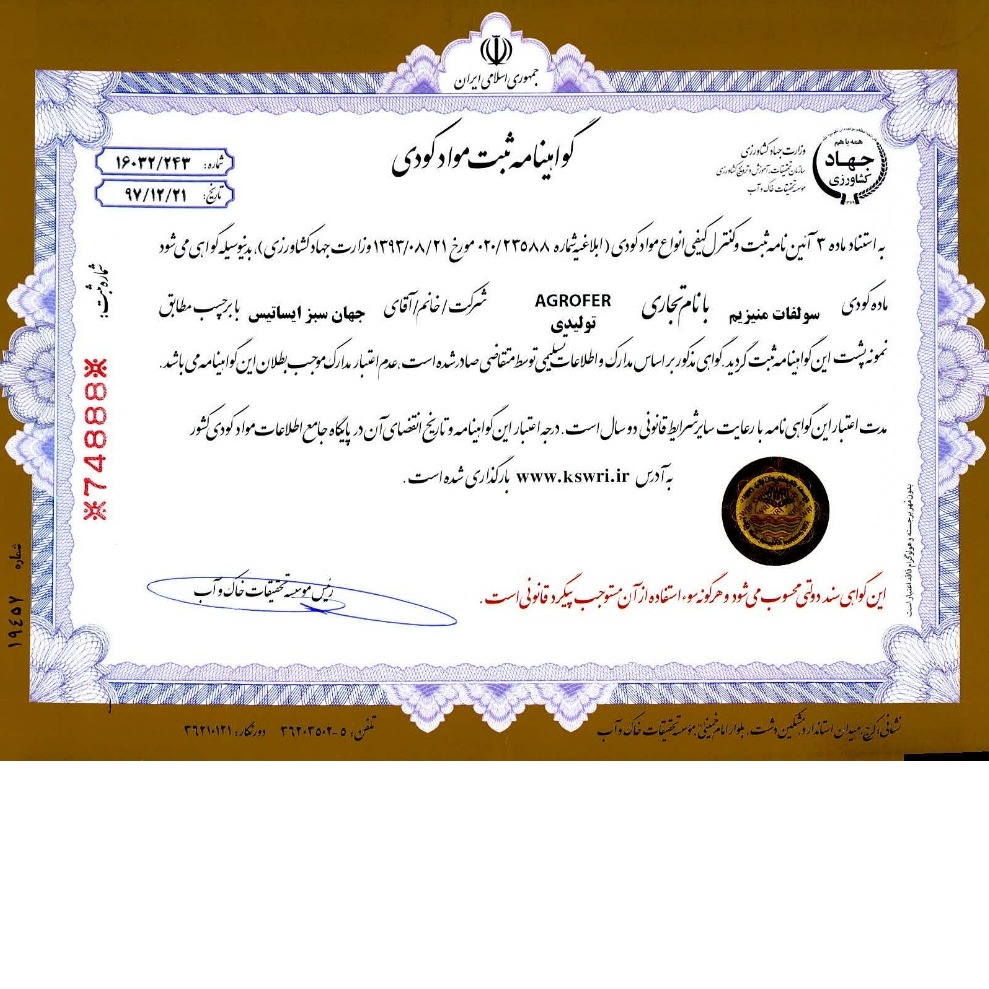 جمهوری اسلامی ایران
همه با هم
جهاد
کشاورزی
وزارت جهاد کشاورزی
سازمان تحقیقات، آموزش و ترویج کشاورزی
موسسه تحقیقات خاک و آب
گواهینامه ثبت مواد کودی
شماره: ۱۶۰۳۲/۲۴۳
تاریخ: ۹۷/۱۲/۲۱
به استناد ماده ۳ آئین نامه ثبت و کنترل کیفی انواع مواد کودی (ابلاغیه شماره ۰۲۰/۲۳۵۸۸ مورخ ۱۳۹۳/۰۸/۲۱ وزارت جهاد کشاورزی)، بدینوسیله گواهی می شود
ماده کودی سولفات منیزیم با نام تجاری AGROFER تولیدی شرکت/خانم/آقای جهان سبز ایساتیس با برچسب مطابق
نمونه پشت این گواهینامه ثبت گردید. گواهی مذکور بر اساس مدارک و اطلاعات تسلیمی توسط متقاضی صادر شده است. عدم اعتبار مدارک موجب بطلان این گواهینامه می باشد.
مدت اعتبار این گواهی نامه با رعایت سایر شرایط قانونی دو سال است. درجه اعتبار این گواهینامه و تاریخ انقضای آن در پایگاه جامع اطلاعات مواد کودی کشور
به آدرس www.kswri.ir بارگذاری شده است.
این گواهی سند دولتی محسوب می شود و هرگونه سوء استفاده از آن مستوجب پیگرد قانونی است.
رئیس موسسه تحقیقات خاک و آب
شماره ثبت:
※74888※
شماره ۱۹٤۵۷
بدون مهر برجسته و هولوگرام فاقد اعتبار است
نشانی: کرج، میدان استاندارد، مشکین دشت، بلوار امام خمینی، موسسه تحقیقات خاک و آب
تلفن: ۵-۳۶۲۰۳۵۰۲ دورنگار: ۳۶۲۱۰۱۲۱